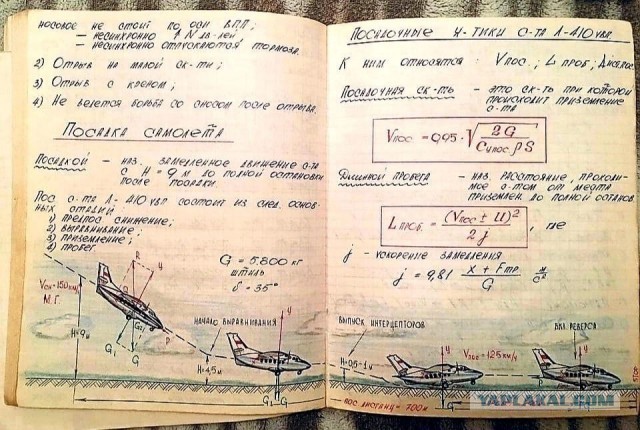 носовое не стоит по оси ВПП;
– несинхронно ↑ N дв-лей
– несинхронно отпускаются тормоза.
2) Отрыв на малой ск-ти;
3) Отрыв с креном;
4) Не ведется борьба со сносом после отрыва.
Посадка самолета
Посадкой – наз. замедленное движение с-та
с H = 9 м до полной остановки
после посадки.
Пос. с-та Л-410 УВП состоит из след. основ-
ных стадий
1) предпос снижение;
2) выравнивание;
3) приземление;
4) пробег.
G = 5.800 кг
штиль
δ = 35°
Vсн = 150 км/ч
М.Г.
R
У
Q
G₂
P
G₁
G
H = 9м
начало выравнивания
H = 4,5м
У
G₁ G
Посадочные х-тики с-та Л-410 УВП
К ним относятся: Vпос.; L проб.;
Посадочная ск-ть – это ск-ть при которой
происходит приземление
с-та
Vпос = 0,95 · √(2G / Cупос ρ S)
Длинной пробега – наз. расстояние, проходи-
мое с-том от места
приземлен. до полной останов.
L проб. = (Vпос ± U)² / 2j , где
j – ускорение замедления
j = 9,81 X + Fтр / G м/с²
выпуск интерцепторов
H = 0,5 – 1м
У
Vпос = 125 км/ч
вкл. реверса
У
P
G
G
пос. дистанц = 700м
YAPLAKAL.COM